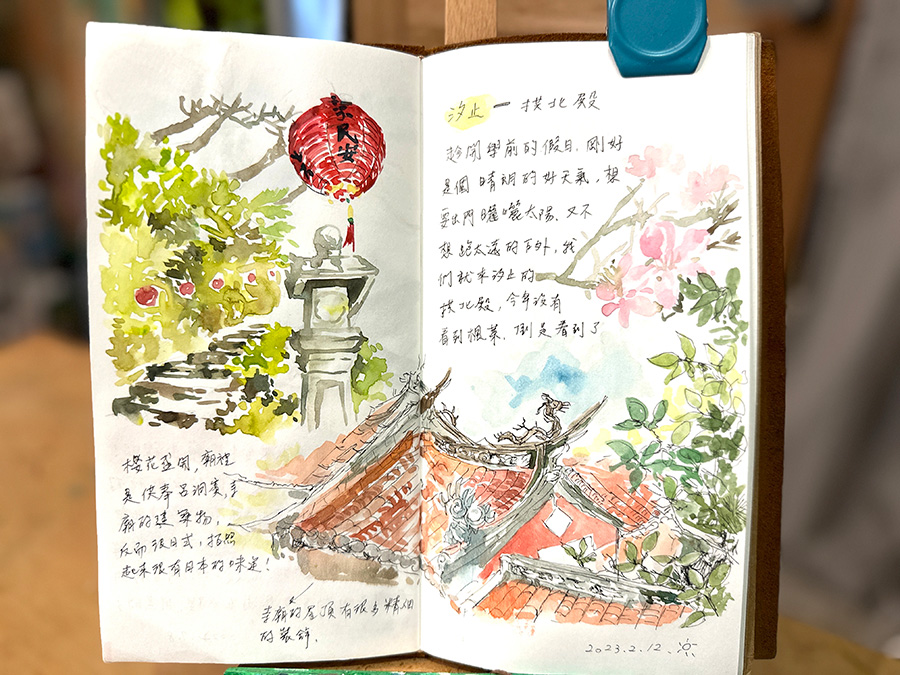 泰民安
汐止 一 拱北殿
趁開學前的假日. 剛好
是個 晴朗的好天氣, 想
要出門 曬曬太陽. 又不
想 跑太遠的 外, 我
們就來汐止的
拱北殿, 今年沒有
看到楓葉. 倒是看到了
櫻花盛開, 廟裡
是供奉呂洞賓, 寺
廟的建築物,
反而很日式, 拍照
起來很有日本的味道!
寺廟的屋頂有很多精細
的裝飾.
2023.2.12.